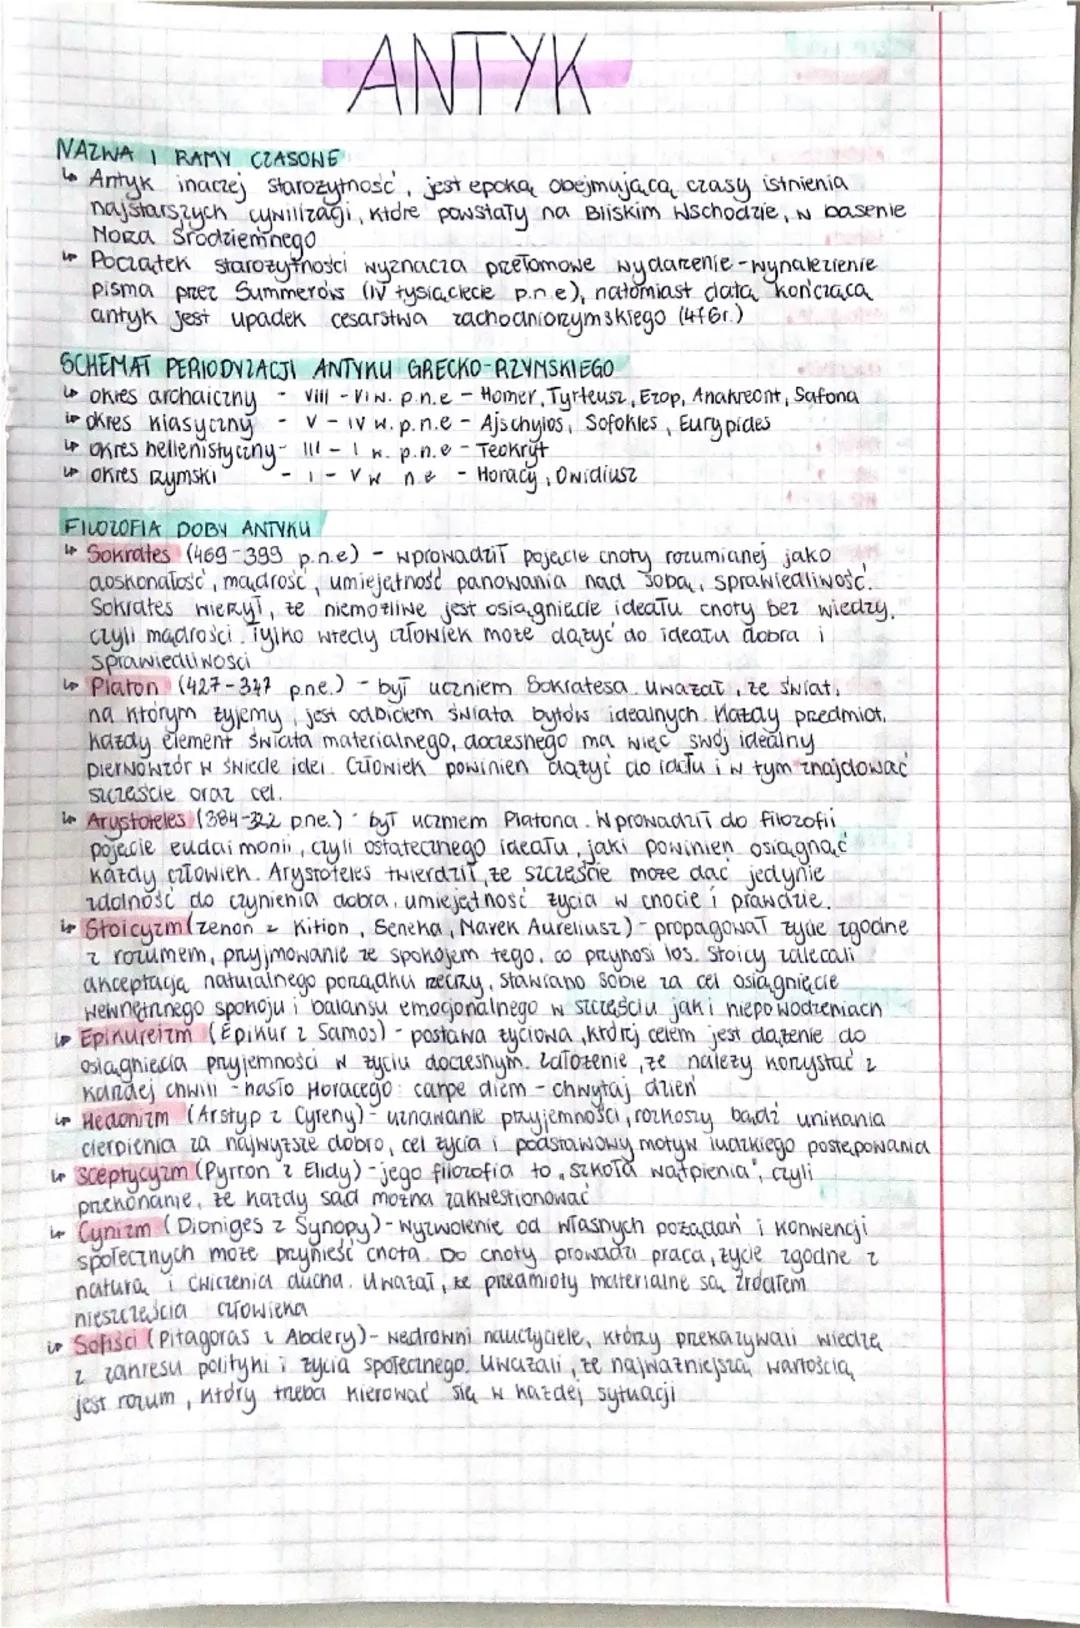 ANTYK
NAZWA I RAMY CZASOWE
↳ Antyk inaczej starożytność, jest epoką obejmującą czasy istnienia
najstarszych cywilizacji, które powstały na Bliskim Wschodzie, w basenie
Morza Śródziemnego
↳ Początek starożytności wyznacza przełomowe wydarzenie - wynalezienie
pisma przez Summerów (IV tysiąclecie p.n.e), natomiast datą kończącą
antyk jest upadek cesarstwa zachodniorzymskiego (476r.)
SCHEMAT PERIODYZACJI ANTYKU GRECKO-RZYMSKIEGO
↳ okres archaiczny - VIII - VI w. p.n.e - Homer, Tyrteusz, Ezop, Anakreont, Safona
↳ okres klasyczny - V - IV w. p.n.e - Ajschylos, Sofokles, Eurypides
↳ okres hellenistyczny - III - I w. p.n.e - Teokryt
↳ okres rzymski - I - V w n.e - Horacy, Owidiusz
FILOZOFIA DOBY ANTYKU
↳ Sokrates (469-399 p.n.e) - wprowadził pojęcie cnoty rozumianej jako
doskonałość, mądrość, umiejętność panowania nad sobą, sprawiedliwość.
Sokrates wierzył, że niemożliwe jest osiągnięcie ideału cnoty bez wiedzy,
czyli mądrości. Tylko wtedy człowiek może dążyć do ideału dobra i
sprawiedliwości
↳ Platon (427-347 p.n.e.) - był uczniem Sokratesa. Uważał, że świat,
na którym żyjemy, jest odbiciem świata bytów idealnych. Każdy przedmiot,
każdy element świata materialnego, doczesnego ma więc swój idealny
pierwowzór w świecie idei. Człowiek powinien dążyć do ideału i w tym znajdować
szczęście oraz cel.
↳ Arystoteles (384-322 p.n.e.) - był uczniem Platona. Wprowadził do filozofii
pojęcie eudaimonii, czyli ostatecznego ideału, jaki powinien osiągnąć
każdy człowiek. Arystoteles twierdził, że szczęście może dać jedynie
zdolność do czynienia dobra, umiejętność życia w cnocie i prawdzie.
↳ Stoicyzm (Zenon z Kition, Seneka, Marek Aureliusz) - propagował życie zgodne
z rozumem, przyjmowanie ze spokojem tego, co przynosi los. Stoicy zalecali
akceptację naturalnego porządku rzeczy, stawiano sobie za cel osiągnięcie
wewnętrznego spokoju i balansu emocjonalnego w szczęściu jak i niepowodzeniach
↳ Epikureizm (Epikur z Samos) - postawa życiowa, której celem jest dążenie do
osiągnięcia przyjemności w życiu doczesnym. Założenie, że należy korzystać z
każdej chwili - hasło Horacego: carpe diem - chwytaj dzień
↳ Hedonizm (Arstyp z Cyreny) - uznawanie przyjemności, rozkoszy bądź unikania
cierpienia za najwyższe dobro, cel życia i podstawowy motyw ludzkiego postępowania
↳ Sceptycyzm (Pyrron z Elidy) - jego filozofia to „szkoła wątpienia", czyli
przekonanie, że każdy sąd można zakwestionować
↳ Cynizm (Dioniges z Synopy) - wyzwolenie od własnych pożądań i konwencji
społecznych może przynieść cnota. Do cnoty prowadzi praca, życie zgodne z
naturą i ćwiczenia ducha. Uważał, że przedmioty materialne są źródłem
nieszczęścia człowieka
↳ Sofiści (Pitagoras z Abdery) - wędrowni nauczyciele, którzy przekazywali wiedzę
z zakresu polityki i życia społecznego. Uważali, że najważniejszą wartością
jest rozum, który trzeba kierować się w każdej sytuacji